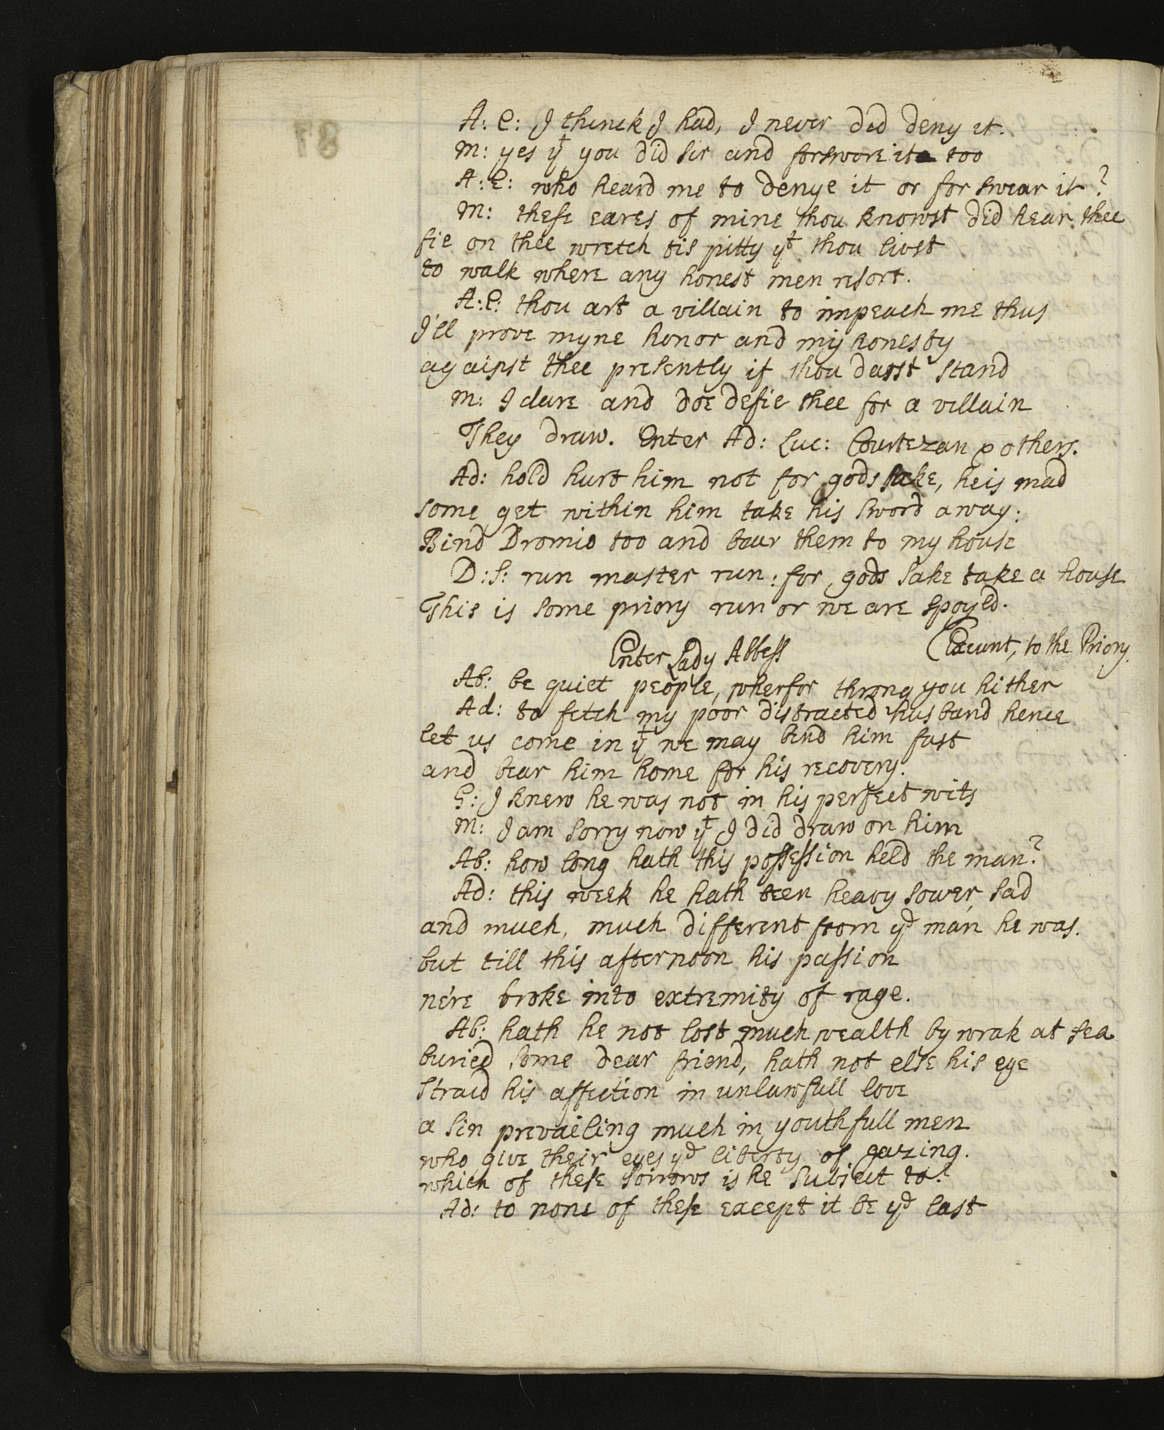 A: E: I thinck I had, I never did deny it.
M: yes yt you did sir and forswore it too
A: E: who heard me to denye it or forswear it?
M: these eares of mine thou knowst did hear thee
fie on thee wretch tis pitty yt thou livst
to walk where any honest men resort.
A: E: thou art a villain to impeach me thus
I'll prove myne honor and my honesty
against thee presently if thou darst stand
M: I dare and doe defie thee for a villain
They draw. Enter Ad: Luc: Courtezan & others.
Ad: hold hurt him not for gods sake, he is mad
some get within him take his sword away:
Bind Dromio too and bear them to my house
D: S: run master run: for gods sake take a house
This is some priory run or we are spoyld.
Exeunt, to the Priory.
Enter Lady Abbess
Ab: be quiet people, wherfor throng you hither
Ad: to fetch my poor distracted husband hence
let us come in yt we may bind him fast
and bear him home for his recovery.
G: I knew he was not in his perfect wits
M: I am sorry now yt I did draw on him
Ab: how long hath this possession held the man?
Ad: this week he hath been heavy sower, sad
and much, much different from ye man he was.
but till this afternoon his passion
ne're broke into extremity of rage.
Ab: hath he not lost much wealth by wrak at sea
buried some dear friend, hath not else his eye
straid his affection in unlawfull love
a sin prevailing much in youthfull men
who give their eyes ye liberty of gazing.
which of these sorrows is he subject to?
Ad: to none of these except it be ye last
87